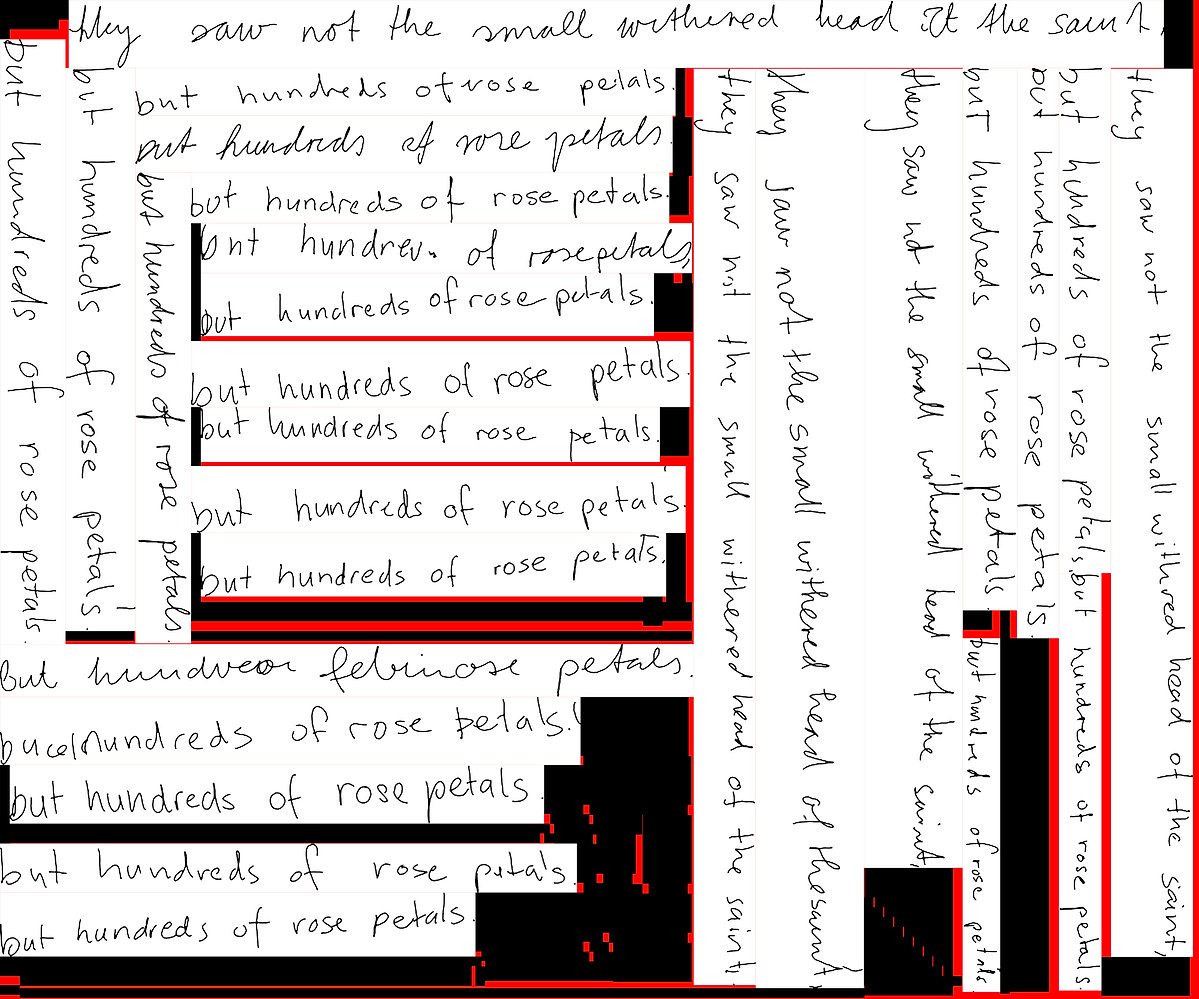 they saw not the small withered head of the saint,
but hundreds of rose petals.
but hundreds of rose petals.
but hundreds of rose petals.
but hundreds of rose petals.
but hundreds of rose petals.
but hundreds of rose petals.
but of rose petals,
but hundreds of rose petals.
but hundreds of rose petals.
but hundreds of rose petals.
but hundreds of rose petals.
but hundreds of rose petals.
but petals.
hundreds of rose petals.
but hundreds of rose petals.
but hundreds of rose petals.
but hundreds of rose petals.
they saw not the small withered head of the saint,
they saw not the small withered head of the saint,
they saw not the small withered head of the saint,
but hundreds of rose petals.
but hundreds of rose petals.
but hundreds of rose petals.
but hundreds of rose petals,
but hundreds of rose petals.
they saw not the small withred head of the saint,